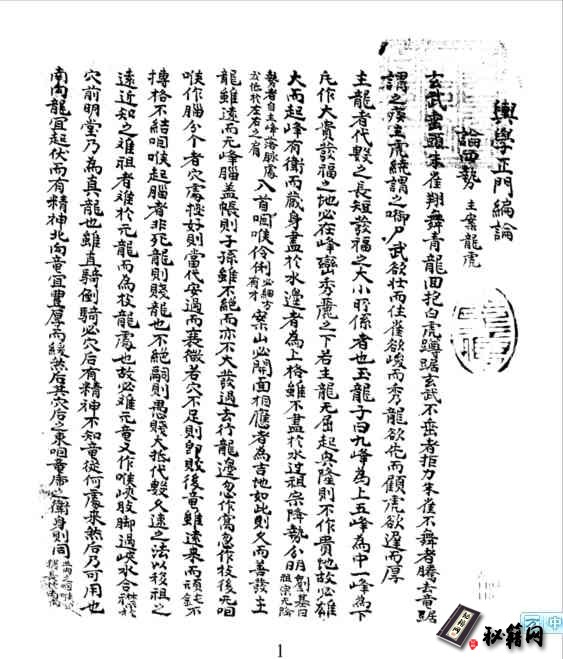 輿學正門編論
論四勢 主案龍虎
玄武垂頭朱雀翔舞青龍回抱白虎蹲踞玄武不垂者拒力朱雀不舞者騰去竜踞
謂之疾主虎繞謂之啣尸武欲壯而住雀欲峻而秀龍欲拖而顧虎欲遅而厚
主龍者代數之長短發福之大小所係者也玉龍子曰九峰為上五峰為中一峰為下
凡作大貴發福之地必在峰巒秀麗之下若主龍无屈起與隆則不作貴地故必雄
大而起峰有衝而藏身盡於水邊者為上格雖不盡於水过祖宗降勢分明 劉基曰 祖宗无險
勢者自主峰落脉處 入首咽喉伶俐 必細方有才 案山必開面相應者為吉地如此則久而善發主
龍雖遠而无峰腦盖帳則子孫雖不絶而亦不大發過去行龍邊忽作窩忽作枝後元咽
喉作腦分个者穴處極好則當代安過而衰微若穴不足則卽敗後竜雖遠來而頑
搏格不結咽喉起腦者非死龍則賤龍也不絶嗣則愚賤大抵代數久遠之法以移祖之
遠近知之难祖者难於元龍而為枝龍處也故必难元竜又作喉峽肢脚過峽水合襟於
穴前明堂乃為真龍也雖直騎倒騎必穴后有精神不知竜從何處來然后乃可用也
南向龍宜起伏而有精神北向竜宜豊厚而緩然后其穴后之束咽竜虎之衛身則同
1
秘籍网
中